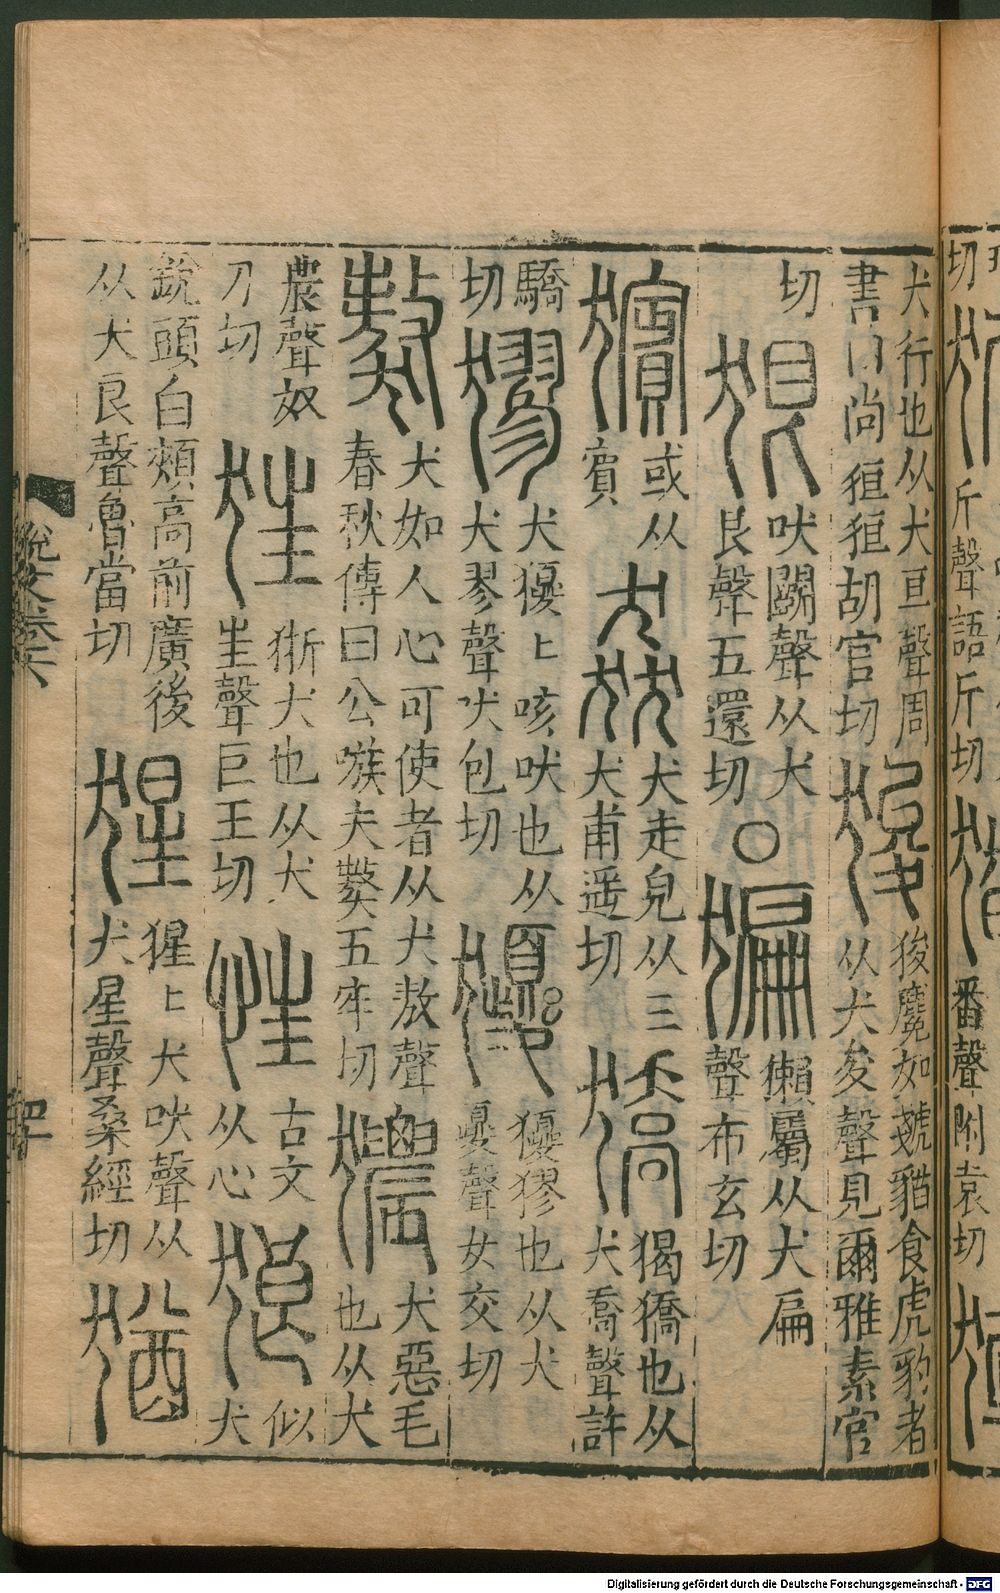 切斤聲語斤切番聲附袁切
犬行也从犬亘聲周
書曰尚狟狟胡官切
狻
狻麑如虦貓食虎豹者
从犬夋聲見爾雅素官
切
狠
吠鬭聲从犬
艮聲五還切
○
猵
獺屬从犬扁
聲布玄切
獱
或从
賓
猋
犬走皃从三
犬甫遥切
獢
猲獢也从
犬喬聲許
驕
切
㺒
犬獿〻咳吠也从
犬翏聲火包切
獿
獿㺒也从犬
夒聲女交切
獒
犬如人心可使者从犬敖聲
春秋傳曰公嗾夫獒五牢切
㺜
犬惡毛
也从犬
農聲奴
刀切
狂
狾犬也从犬
㞷聲巨王切
古文
从心
狼
似
犬
銳頭白頰高前廣後
从犬良聲魯當切
猩
猩〻犬吠聲从
犬星聲桑經切
猶
說文卷六
Digitalisierung gefördert durch die Deutsche Forschungsgemeinschaft - DFG